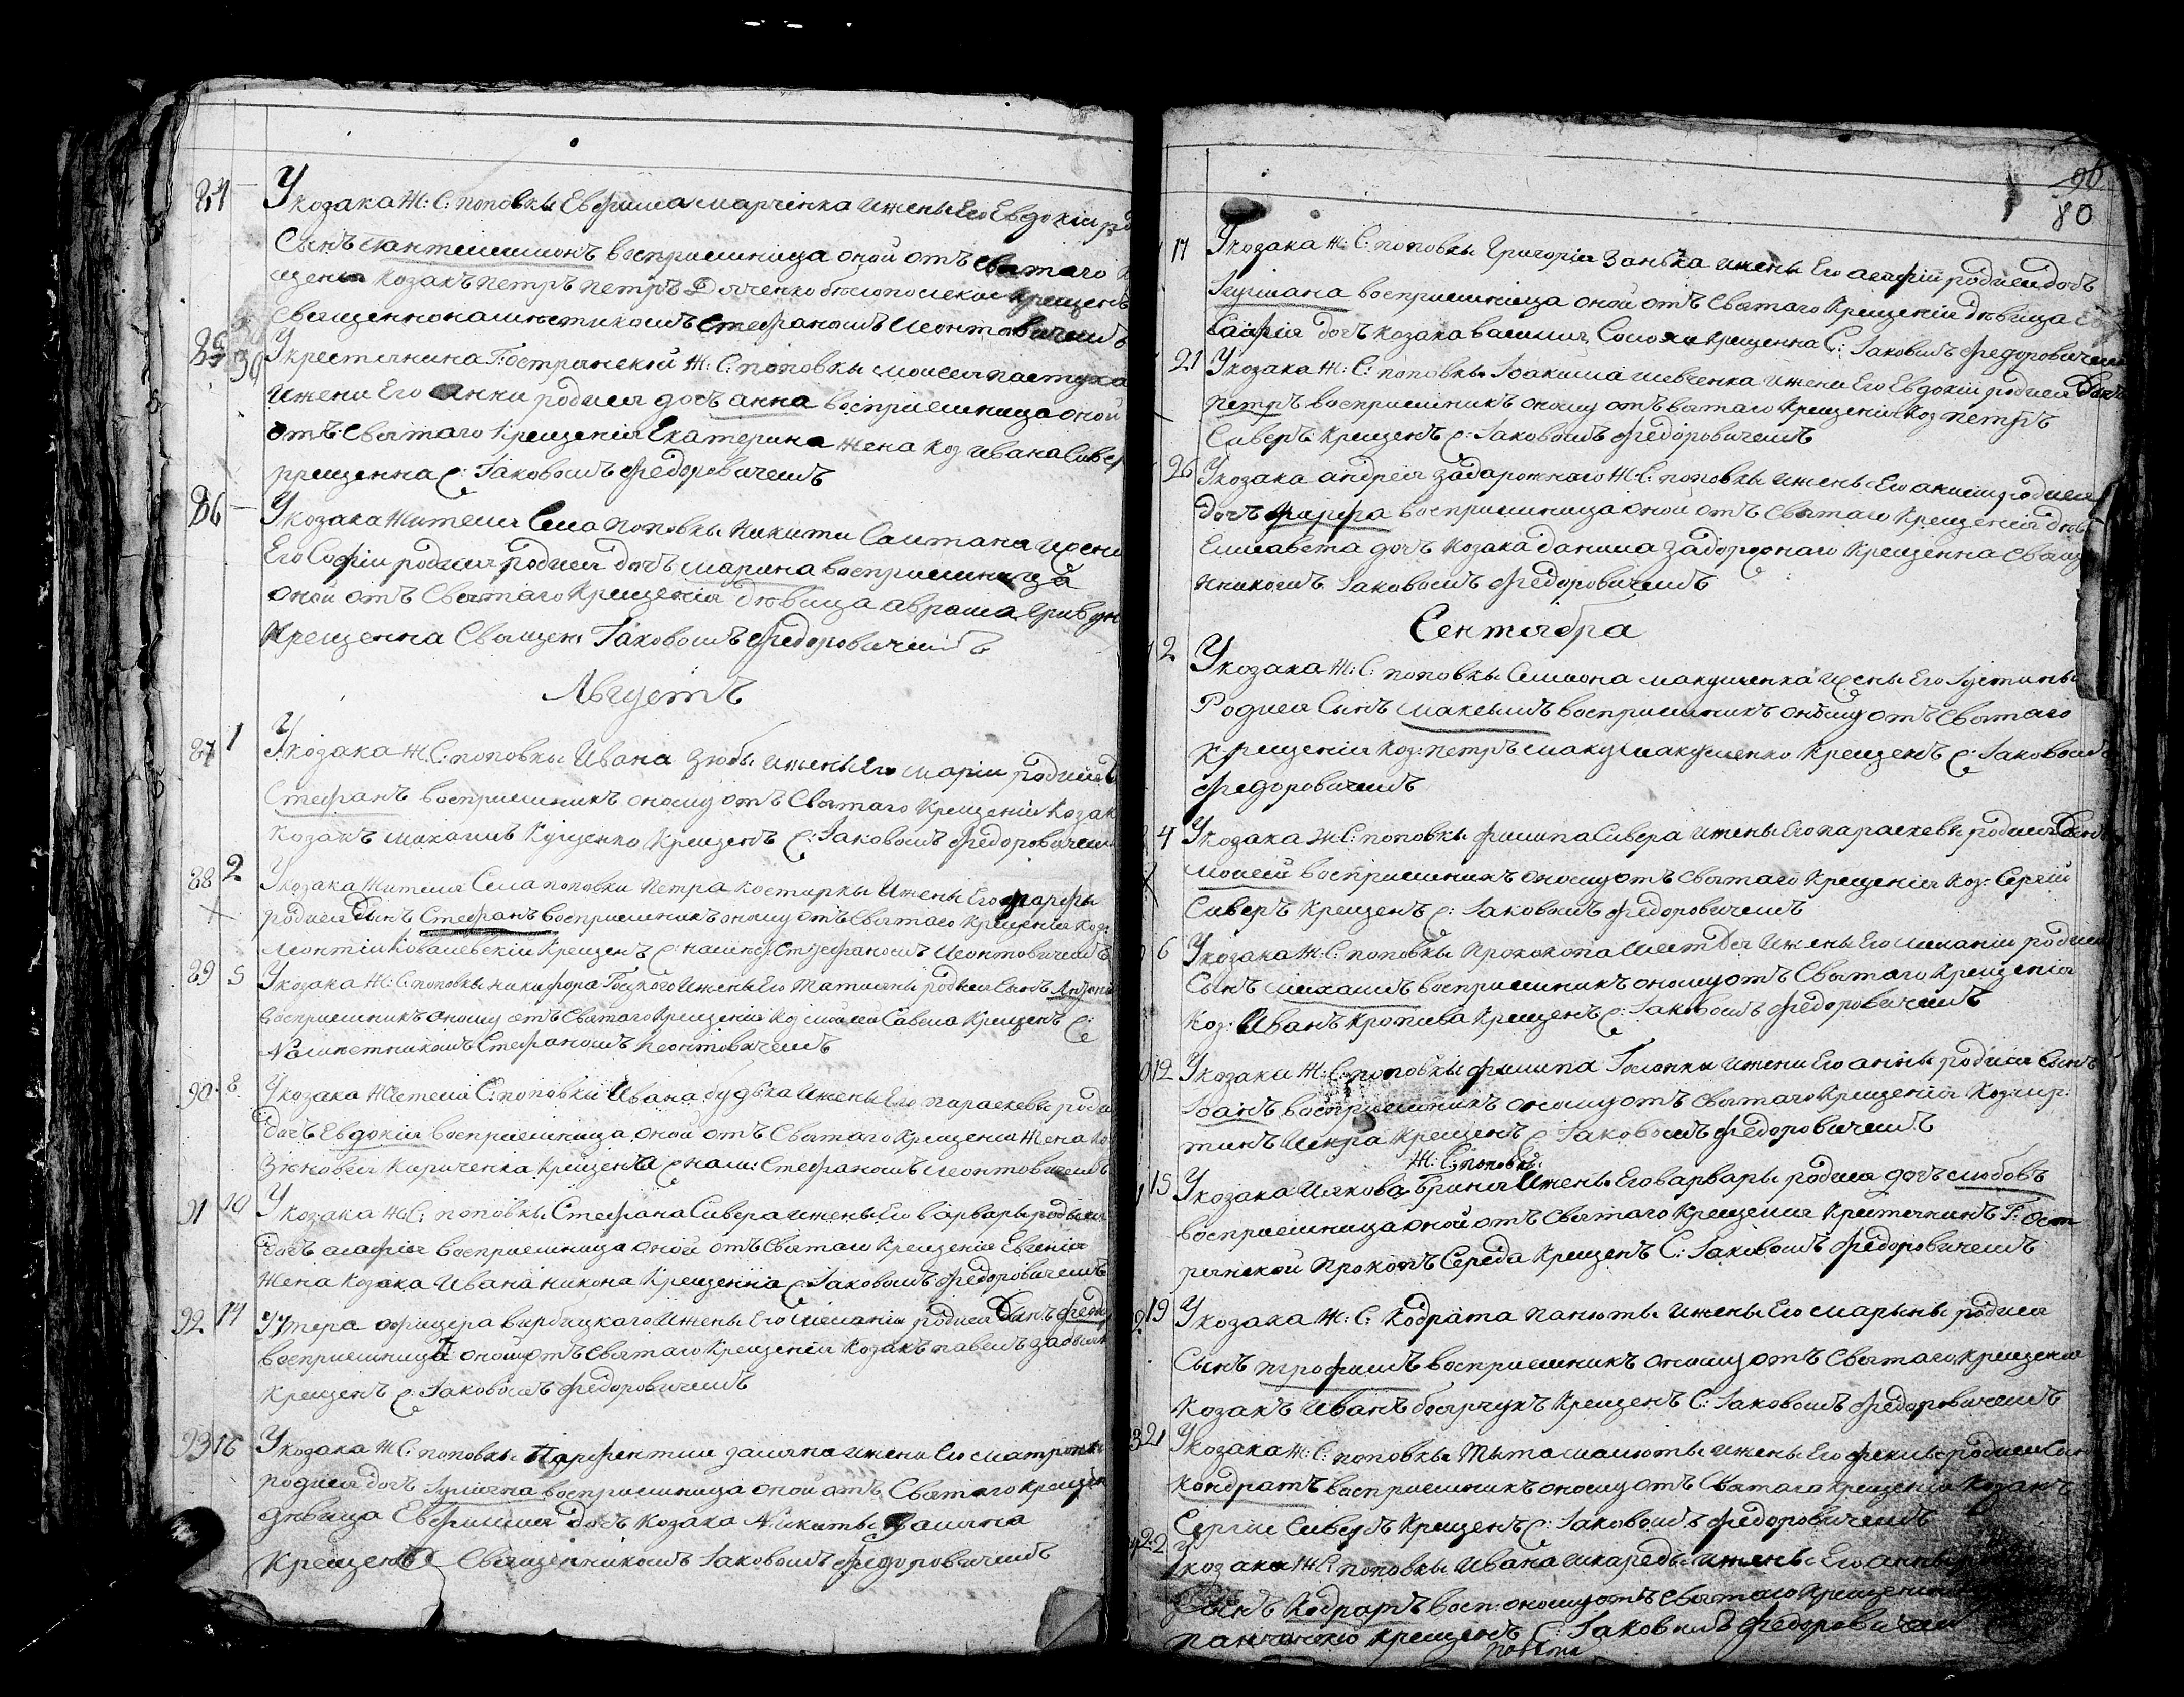 84 — У козака Ж: С: поповки Евфима марченка и жены Его Евдокіи
Сынъ пантелимонъ воспріемница оной отъ святаго
щенія козакъ петръ петръ Дяченко бѣлопол крещенъ
священнонаместникомъ Стефаномъ Леонтовичемъ
85 30 У крестянина Г: острянской Ж: С: поповки моисея пастуха
и жени Его Анни родися дочъ анна воспріемница оной
отъ святаго крещенія Екатерина жена коз ивана Сивер
крещенна С: Іаковомъ Федоровичемъ
86 — У козака жителя Села поповки Никити Салтана и жени
Его Софіи родися родися дочъ марина воспріемница
оной отъ Святаго крещенія дѣвица
крещенна Священ Іаковомъ Федоровичемъ
Августъ
87 1 У козака Ж: С: поповки Ивана Зюбы и жены Его маріи родися
Стефанъ воспріемникъ оному отъ Святаго Крещенія Козак
козакъ михаилъ Куценко Крещенъ С: Іаковомъ Федоровичем
88 2 У козака жителя Села поповки Петра костирки и жены Его марфы
родися Сынъ Стефанъ воспріемникъ оному отъ Святаго крещенія Коз:
Леонтіи Ковалевскій Крещенъ С: намѣс: Стефаномъ Леонтовичемъ
89 5 У козака Ж: С: поповки никифора Гоцкого и жены Его Татияны родися Сынъ
воспріемникъ оному отъ Святаго Крещенія Коз Савела Крещенъ С:
Намѣстникомъ Стефаномъ Леонтовичемъ
90 8 У козака жителя С: поповки Ивана будька и жены Его параскевы роди
дочъ Евдокія воспріемница оной отъ Святаго крещенія жена
Зѣновія Кириченка крещенна С нам: Стефаномъ Леонтовичемъ
91 10 У козака Ж: С: поповки Стефана Сивера и жены Его варвары родися
дочъ агафія воспріемница оной отъ Святаго крещенія Евгенія
жена козака Ивана никона Крещенна С: Іаковомъ Федоровичемъ
92 14 У Утера офицера вирбицкаго и жены Его меланіи родися Сынъ
воспріемница оному отъ Святаго крещенія козакъ павелъ
крещенъ С: Іаковомъ Федоровичемъ
93 16 У козака Ж: С: поповки Парфентия и жени Его матроны
родися дочъ Іуліяна воспріемница оной отъ Святаго крещен
дѣвица Евфимия дочъ козака Никиты
крещен Священникомъ Іаковомъ Федоровичемъ
96
80
17 У козака Ж: С: поповки Григорія Занька и жены Его агафіи родися дочъ
Іуліана воспріемница оной отъ Святаго Крещенія дѣвица
дочъ козака василия крещенна С: Іаковомъ Федоровичем
21 У козака Ж: С: поповки Іоакима шевченка и жени Его Евдокіи родися Сынъ
петръ воспріемникъ оному отъ святаго Крещенія коз петръ
Сиверъ Крещенъ С: Іаковомъ Федоровичемъ
26 У козака андрея задарожнаго Ж: С: поповки и жены Его родися
дочъ марфа воспріемница оной отъ Святаго Крещенія дѣв
Елисавета дочъ козака данила задорожнаго Крещенна Свящ
нникомъ Іаковомъ Федоровичемъ
Сентября
2 У козака Ж: С: поповки Симиона макушенка и жены Его Іустины
Родися Сынъ максимъ воспріемникъ оному отъ Святаго
Крещенія коз: петръ маку макушенко Крещенъ С: Іаковом
Федоровичемъ
4 У козака Ж: С: поповки филипа Сивера и жены Его параскевы родися Сынъ
моисей воспріемникъ оному отъ Святаго Крещенія Коз: Сергій
Сиверъ Крещенъ С: Іаковомъ Федоровичемъ
6 У козака Ж: С: поповки Прокопа и жены Его меланіи родися
Сынъ михаилъ воспріемникъ оному отъ Святаго Крещенія
Коз: Иванъ Кропива Крещенъ С: Іаковомъ Федоровичемъ
12 У козака Ж: С: поповки филипа и жени Его анны родися Сынъ
Іоанъ воспріемникъ оному отъ Святаго Крещенія Коз:
тинъ Искра Крещенъ С Іаковомъ Федоровичемъ
Ж: С: поповк:
15 У козака Иякова Гриня и жены Его варвары родися дочъ любовъ
воспріемница оной отъ Святаго Крещения Крестянинъ Г: Ост
рянской Прокопъ Середа Крещенъ С: Іаковомъ Федоровичемъ
19 У козака Ж: С: Кодрата Панюты и жены Его марины родися
Сынъ трофимъ воспріемникъ оному отъ Святаго Крещения
козакъ Иванъ боярчукъ Крещенъ С: Іаковомъ Федоровичемъ
21 У козака Ж: С: поповки Тита малюты и жены Его феклы родися Сын
Кондратъ воспріемникъ оному отъ Святаго Крещенія козакъ
Сергіи Сиверъ Крещенъ С: Іаковомъ Федоровичемъ
22 У козака Ж: С: поповки Ивана шкареды и жены Его анны
Сынъ Кодратъ восп: оному отъ Святаго Крещения
крещенъ С: Іаковомъ Федоровичем